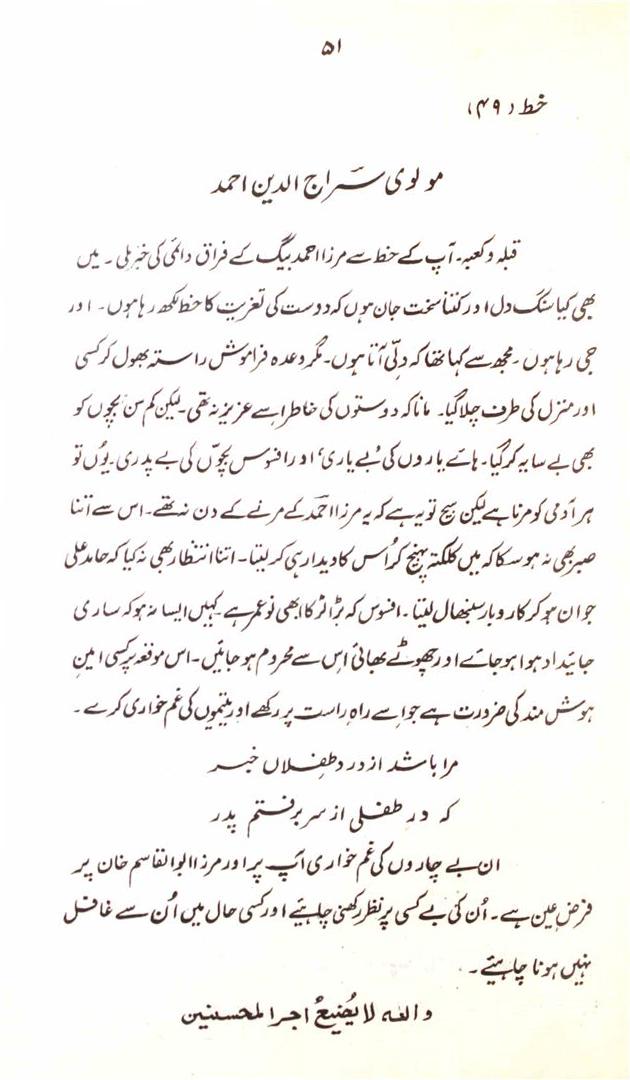 ۵۱
خط (۴۹)
مولوی سراج الدین احمد
قبلہ و کعبہ۔ آپ کے خط سے مرزا احمد بیگ کے فراق دائمی کی خبر ملی۔ میں
بھی کیا سنگ دل اور کتنا سخت جان ہوں کہ دوست کی تعزیت کا خط لکھ رہا ہوں۔ اور
جی رہا ہوں۔ مجھ سے کہا تھا کہ دلّی آتا ہوں۔ مگر وعدہ فراموش راستہ بھول کر کسی
اور منزل کی طرف چلا گیا۔ مانا کہ دوستوں کی خاطر اسے عزیز نہ تھی۔ لیکن کم سن بچوں کو
بھی بے سایہ کر گیا۔ ہائے یاروں کی بُے یاری' اور افسوس بچوّں کی بے پدری۔ یوُں تو
ہر آدمی کو مرنا ہے لیکن سچ تو یہ ہے کہ یہ مرزا احمد کے مرنے کے دن نہ تھے۔ اس سے اتنا
صبر بھی نہ ہو سکا کہ میں کلکتہ پہنچ کر اُس کا دیدار ہی کر لیتا۔ اتنا انتظار بھی نہ کیا کہ حامد علی
جوان ہو کر کاروبار سنبھال لیتا۔ افسوس کہ بڑا لڑکا ابھی نو عمر ہے۔ کہیں ایسا نہ ہو کہ ساری
جائیداد ہوا ہو جائے اور چھوٹے بھائی اس سے محروم ہو جائیں۔ اس موقعہ پر کسی امین
ہوش مند کی ضرورت ہے جو اسے راہِ راست پر رکھے اور یتیموں کی غم خواری کرے۔
مرا باشد از درد طفلاں خبر
کہ در طفلی از سر برفتم پدر
ان بے چاروں کی غم خواری آپ پر اور مرزا ابوالقاسم خان پر
فرض عین ہے۔ اُن کی بے کسی پر نظر رکھنی چاہئیے اور کسی حال میں اُن سے غافل
نہیں ہونا چاہئیے۔
واللہ لا یُضیعُ اجر المحسنین